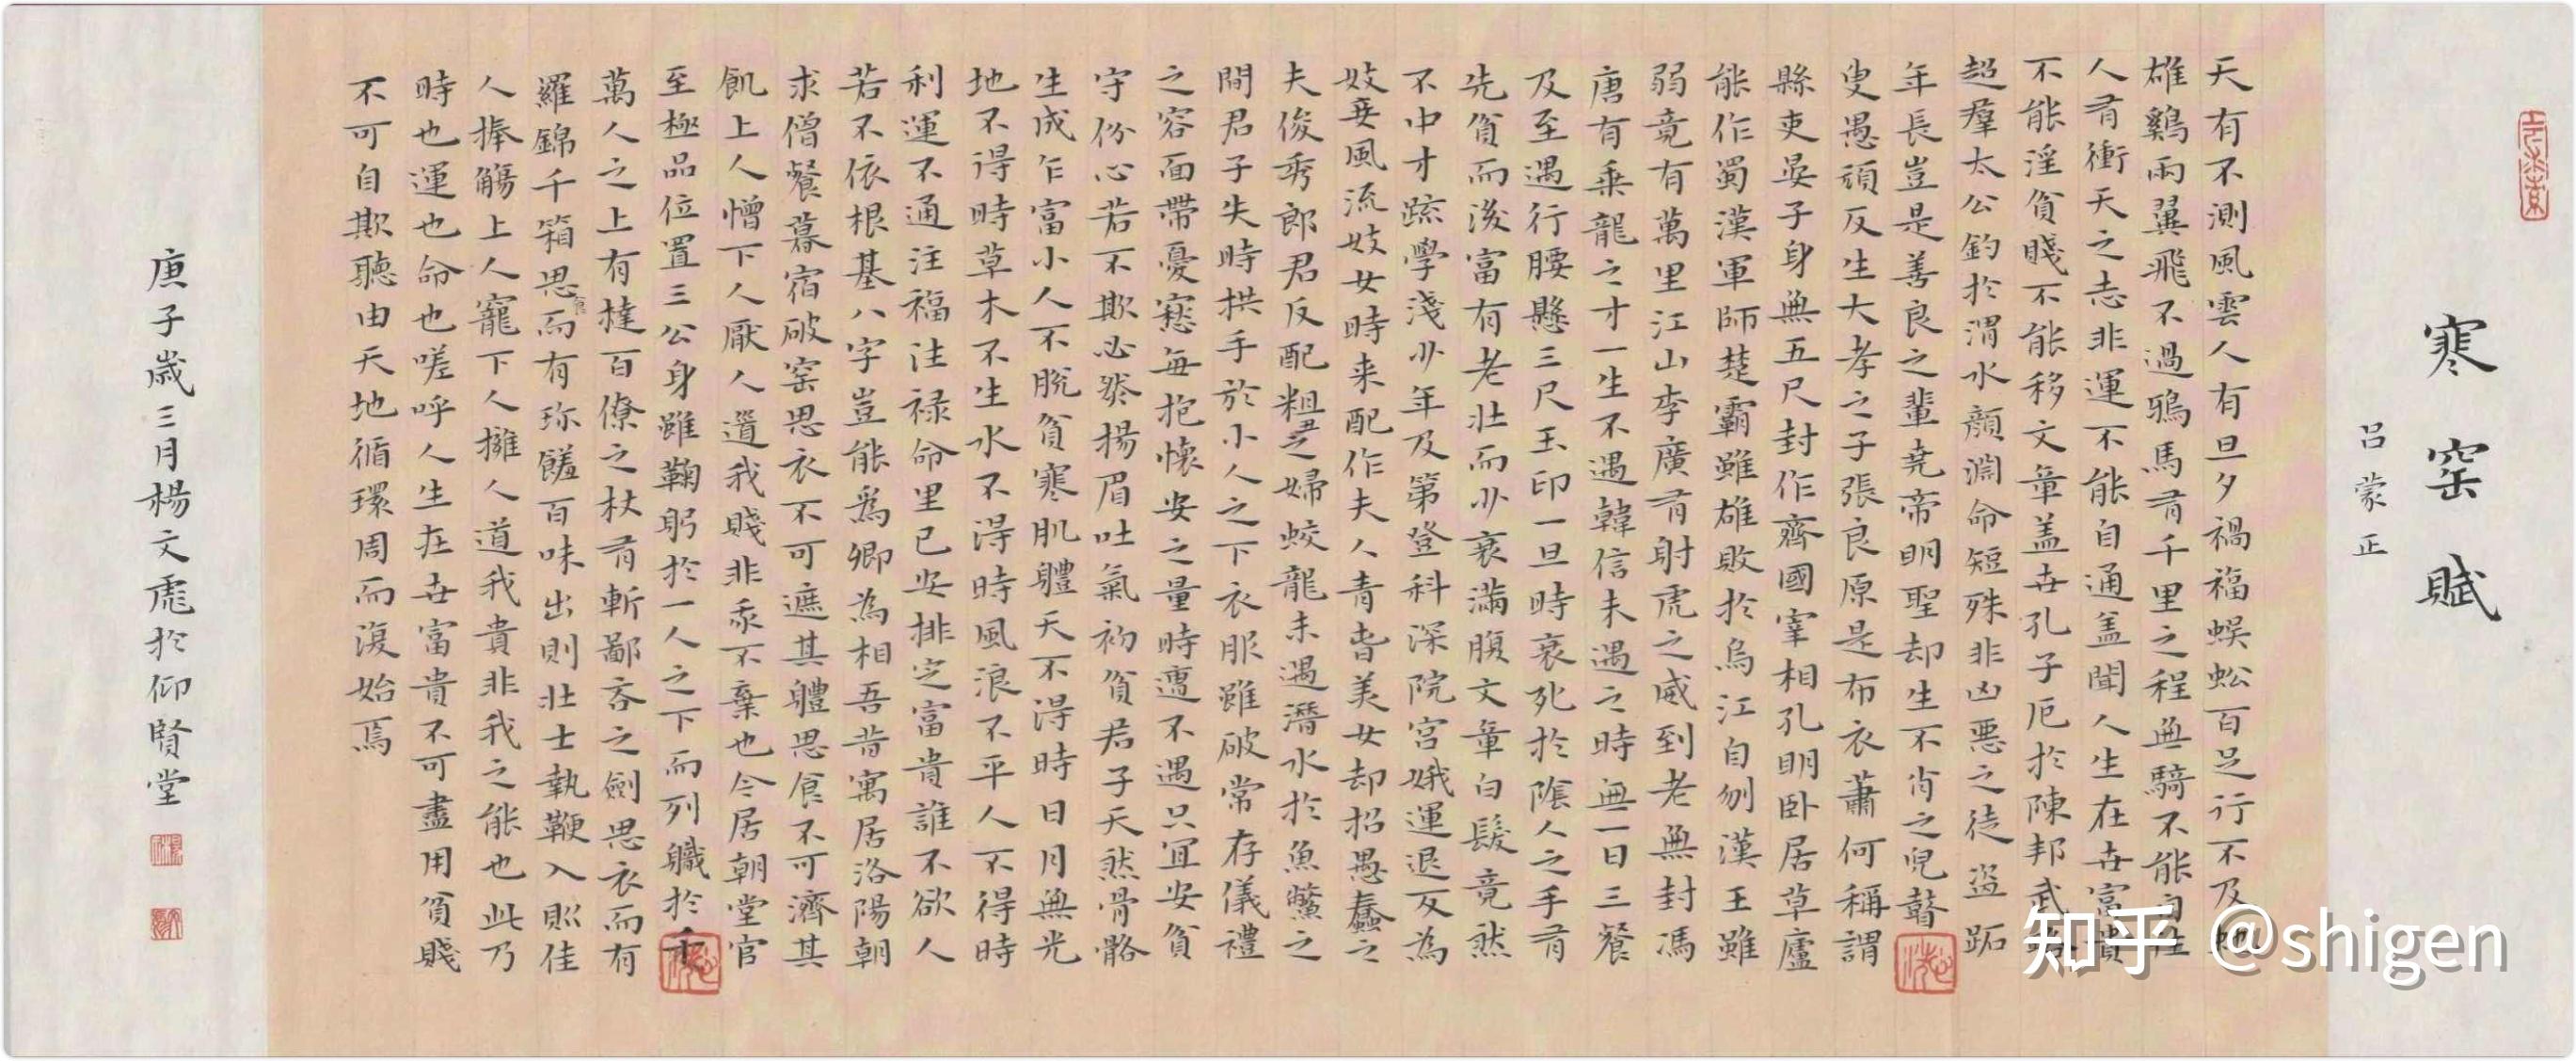 寒窑賦
吕蒙正
天有不測風雲人有旦夕禍福蜈蚣百足行不及蛇
雄鷄兩翼飛不過鴉馬有千里之程無騎不能自往
人有衝天之志非運不能自通盖聞人生在世富貴
不能淫貧賤不能移文章盖世孔子厄於陳邦武略
超羣太公釣於渭水顏淵命短殊非凶惡之徒盗跖
年長豈是善良之輩堯帝明聖却生不肖之兒瞽
叟愚頑反生大孝之子張良原是布衣蕭何稱謂
縣吏晏子身無五尺封作齊國宰相孔明卧居草廬
能作蜀漢軍師楚霸雖雄敗於烏江自刎漢王雖
弱竟有萬里江山李廣有射虎之威到老無封馮
唐有乘龍之才一生不遇韓信未遇之時無一日三餐
及至遇行腰懸三尺玉印一旦時衰死於陰人之手有
先貧而後富有老壯而少衰滿腹文章白髮竟然
不中才疏學淺少年及第登科深院宫娥運退反為
妓妾風流妓女時来配作夫人青春美女却招愚蠢之
夫俊秀郎君反配粗丑之婦蛟龍未遇潛水於魚鱉之
間君子失時拱手於小人之下衣服雖破常存儀禮
之容面帶憂愁每抱懷安之量時遭不遇只宜安貧
守份心若不欺必然揚眉吐氣初貧君子天然骨骼
生成乍富小人不脱貧寒肌體天不得時日月無光
地不得時草木不生水不得時風浪不平人不得時
利運不通注福注禄命里已安排定富貴誰不欲人
若不依根基八字豈能爲卿為相吾昔寓居洛陽朝
求僧餐暮宿破窑思衣不可遮其體思食不可濟其
飢上人憎下人厭人道我賤非我不棄也今居朝堂官
至極品位置三公身雖鞠躬於一人之下而列職於千
萬人之上有撻百僚之杖有斬鄙吝之劍思衣而有
羅錦千箱思食而有珍饈百味出則壯士執鞭入則佳
人捧觴上人寵下人擁人道我貴非我之能也此乃
時也運也命也嗟呼人生在世富貴不可盡用貧賤
不可自欺聽由天地循環周而復始焉
庚子歲三月楊文虎於仰賢堂
知乎 @shigen